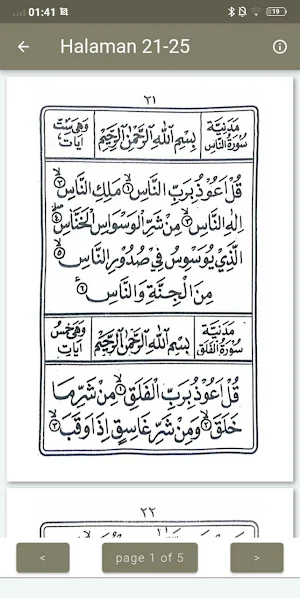 01:41
19
Halaman 21-25
٢١
مدنية
سورة الناس
بِسْمِ اللّٰهِ الرَّحْمٰنِ الرَّحِيْمِ
وهي ست
آيات
قُلْ اَعُوْذُ بِرَبِّ النَّاسِۙ ١ مَلِكِ النَّاسِۙ ٢
اِلٰهِ النَّاسِۙ ٣ مِنْ شَرِّ الْوَسْوَاسِ الْخَنَّاسِۖ ٤
الَّذِيْ يُوَسْوِسُ فِيْ صُدُوْرِ النَّاسِۙ ٥
مِنَ الْجِنَّةِ وَالنَّاسِ ٦
مدنية
سورة الفلق
بِسْمِ اللّٰهِ الرَّحْمٰنِ الرَّحِيْمِ
وهي خمس
آيات
قُلْ اَعُوْذُ بِرَبِّ الْفَلَقِۙ ١ مِنْ شَرِّ مَا
خَلَقَۙ ٢ وَمِنْ شَرِّ غَاسِقٍ اِذَا وَقَبَۙ ٣
٢٢
<
page 1 of 5
>